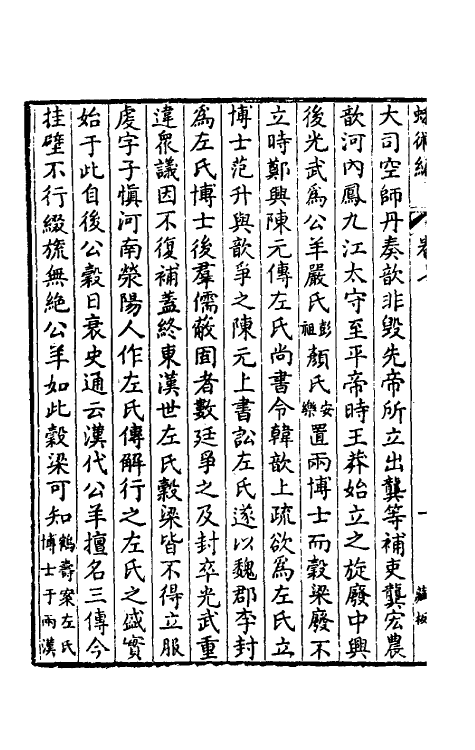 大司空師丹奏歆非毀先帝所立出龔等補吏龔宏農
歆河內鳳九江太守至平帝時王莽始立之旋廢中興
後光武爲公羊嚴氏彭祖顏氏安樂置兩博士而穀梁廢不
立時鄭興陳元傳左氏尚書令韓歆上疏欲爲左氏立
博士范升與歆爭之陳元上書訟左氏遂以魏郡李封
爲左氏博士後羣儒蔽固者數廷爭之及封卒光武重
違衆議因不復補蓋終東漢世左氏穀梁皆不得立服
虔字子愼河南滎陽人作左氏傳解行之左氏之盛實
始于此自後公穀日衰史通云漢代公羊擅名三傳今
挂壁不行綴旒無絕公羊如此穀梁可知鶴壽案左氏博士于兩漢